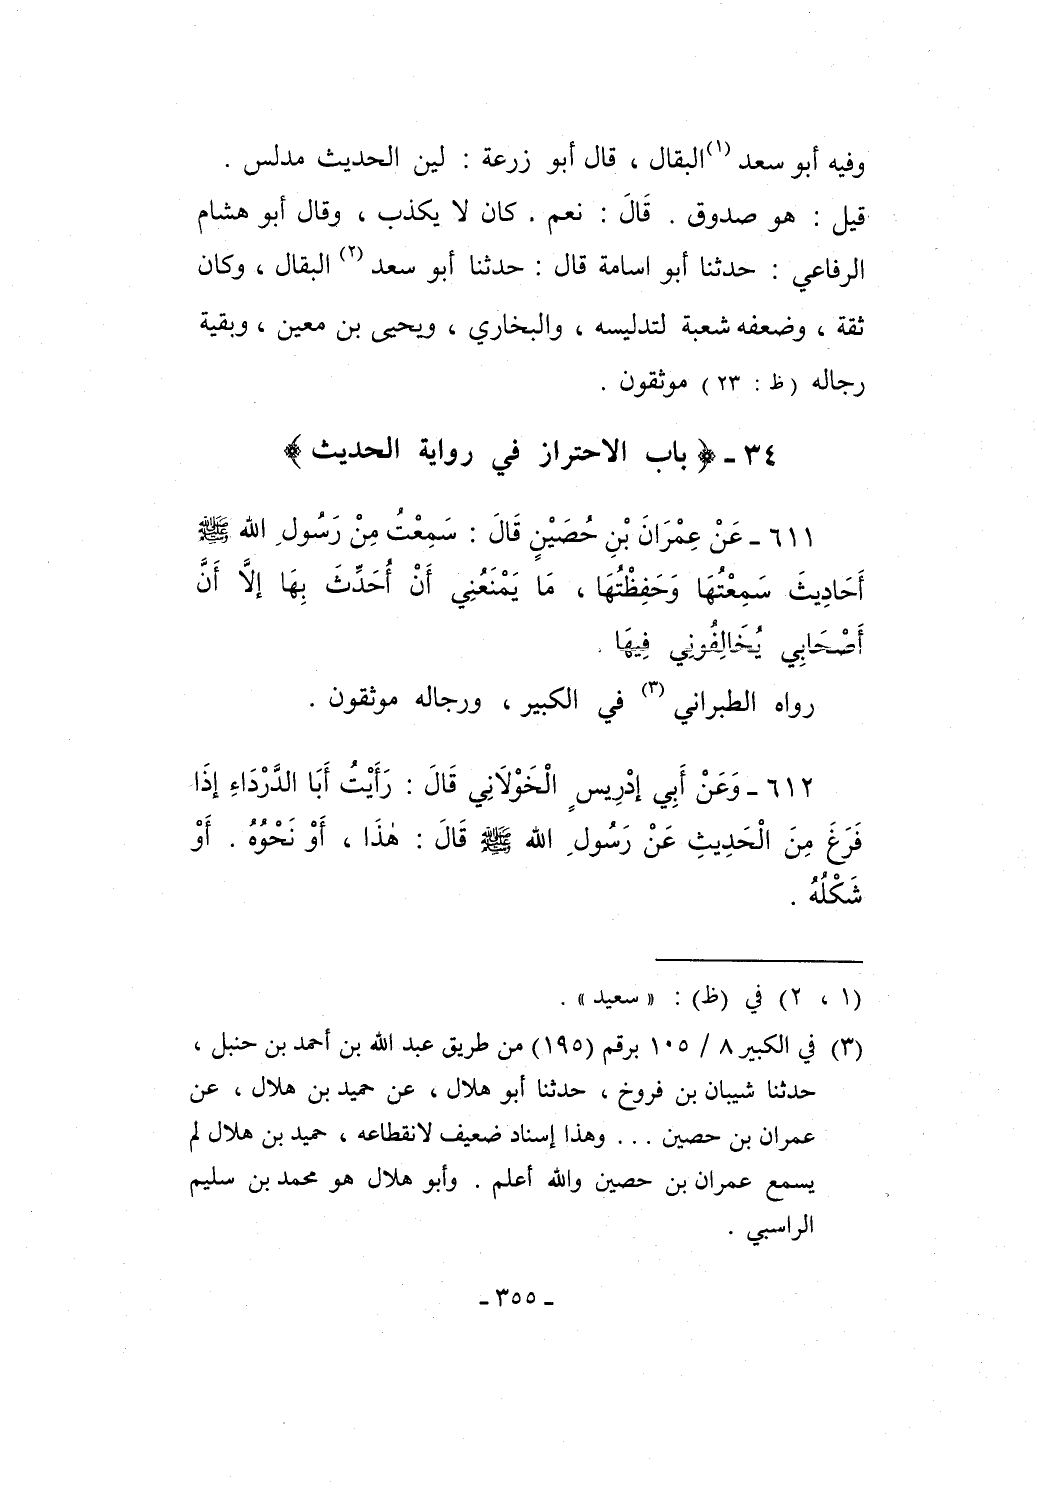 وفيه أبو سعد (١) البقال ، قال أبو زرعة : لين الحديث مدلس .
قيل : هو صدوق . قَالَ : نعم . كان لا يكذب ، وقال أبو هشام
الرفاعي : حدثنا أبو اسامة قال : حدثنا أبو سعد (٢) البقال ، وكان
ثقة ، وضعفه شعبة لتدليسه ، والبخاري ، ويحيى بن معين ، وبقية
رجاله (ظ : ٢٣) موثقون .
٣٤ - ﴿ باب الاحتراز في رواية الحديث ﴾
٦١١ - عَنْ عِمْرَانَ بْنِ حُصَيْنٍ قَالَ : سَمِعْتُ مِنْ رَسُولِ الله ﷺ
أَحَادِيثَ سَمِعْتُهَا وَحَفِظْتُهَا ، مَا يَمْنَعُنِي أَنْ أُحَدِّثَ بِهَا إلاَّ أَنَّ
أَصْحَابِي يُخَالِفُونِي فِيهَا .
رواه الطبراني (٣) في الكبير ، ورجاله موثقون .
٦١٢ - وَعَنْ أَبِي إدْرِيسٍ الْخَوْلَانِي قَالَ : رَأَيْتُ أَبَا الدَّرْدَاءِ إذَا
فَرَغَ مِنَ الْحَدِيثِ عَنْ رَسُولِ الله ﷺ قَالَ : هٰذَا ، أَوْ نَحْوُهُ . أَوْ
شَكْلُهُ .
(١ ، ٢) في (ظ) : « سعيد » .
(٣) في الكبير ٨ / ١٠٥ برقم (١٩٥) من طريق عبد الله بن أحمد بن حنبل ،
حدثنا شيبان بن فروخ ، حدثنا أبو هلال ، عن حميد بن هلال ، عن
عمران بن حصين ... وهذا إسناد ضعيف لانقطاعه ، حميد بن هلال لم
يسمع عمران بن حصين والله أعلم . وأبو هلال هو محمد بن سليم
الراسبي .
- ٣٥٥ -